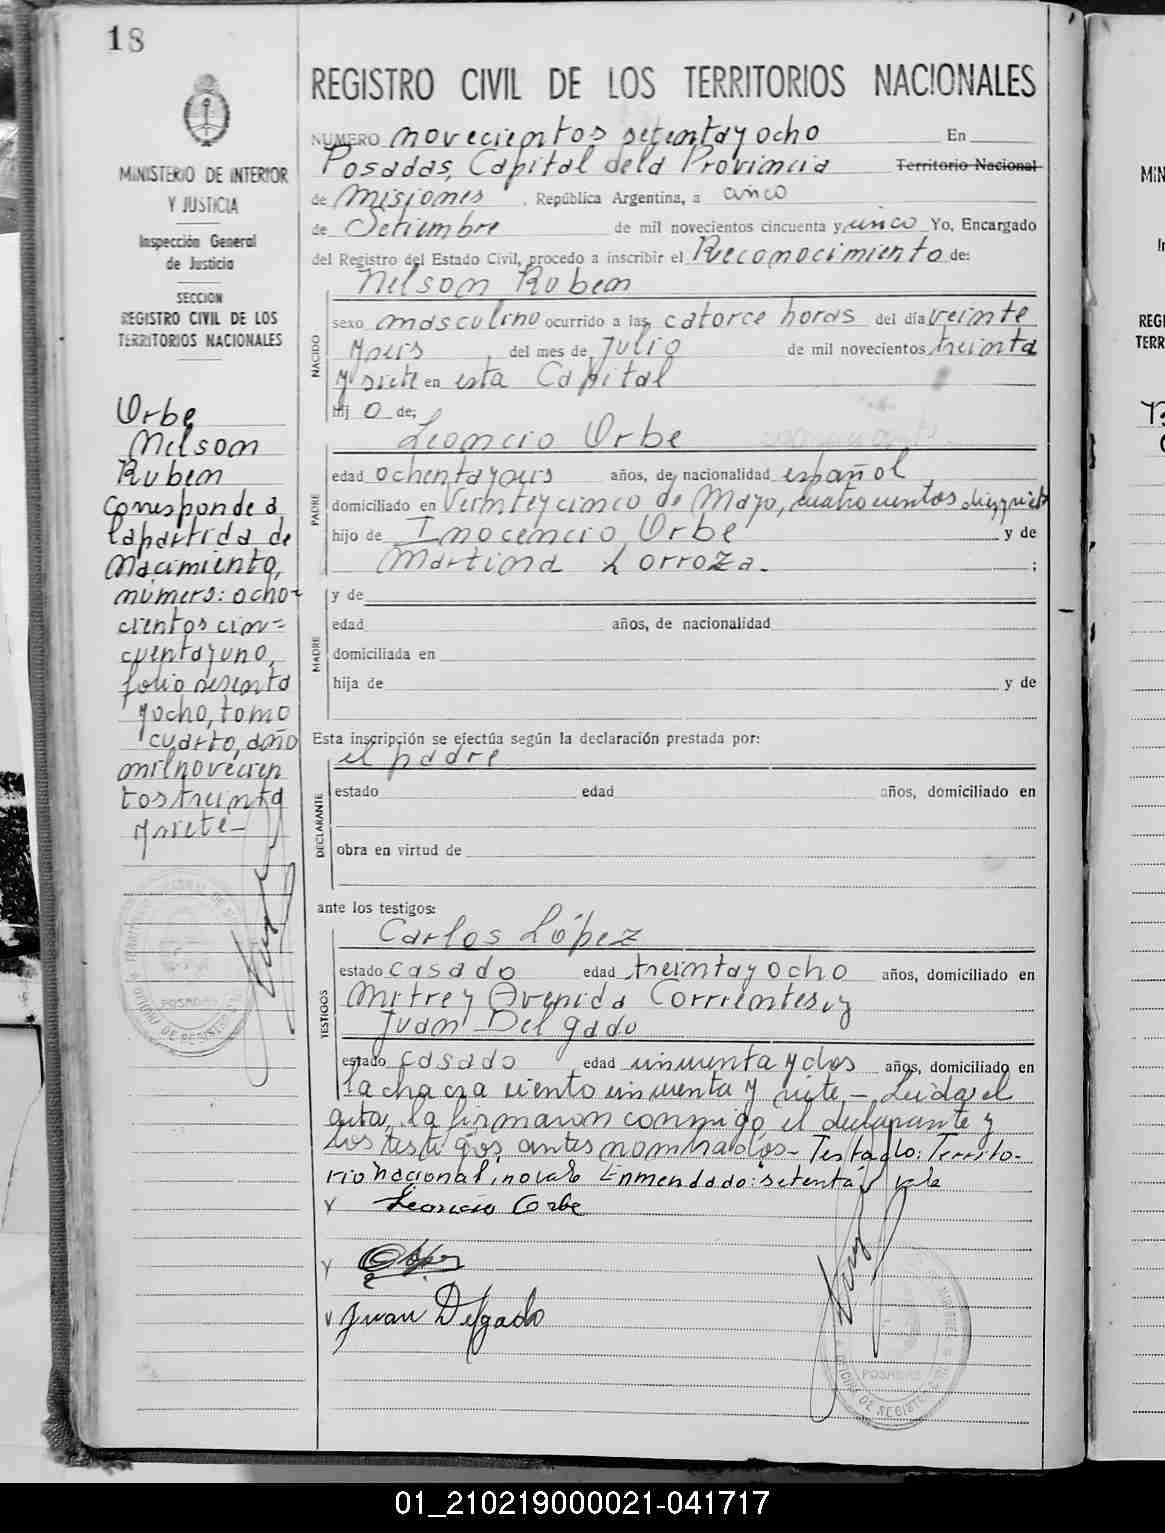 18
MINISTERIO DE INTERIOR
Y JUSTICIA
Inspección General
de Justicia
SECCION
REGISTRO CIVIL DE LOS
TERRITORIOS NACIONALES
Orbe
Nelson
Ruben
Corresponde a
la partida de
Nacimiento,
número: ocho-
cientos cin=
cuenta y uno,
folio sesenta
y ocho, tomo
cuarto, año
mil novecien
tos treinta
y siete -
REGISTRO CIVIL DE LOS TERRITORIOS NACIONALES
NUMERO novecientos setenta y ocho En
Posadas, Capital de la Provincia Territorio Nacional
de Misiones, República Argentina, a cinco
de Setiembre de mil novecientos cincuenta y cinco Yo, Encargado
del Registro del Estado Civil, procedo a inscribir el Reconocimiento de:
Nelson Ruben
NACIDO
sexo masculino ocurrido a las catorce horas del día veinte
y seis, del mes de Julio de mil novecientos treinta
y siete en esta Capital
hij o de;
Leoncio Orbe
PADRE
edad ochenta y seis años, de nacionalidad español
domiciliado en Veinteycinco de Mayo, cuatrocientos diez y siete
hijo de Inocencio Orbe y de
Martina Lorroza. ;
MADRE
y de
edad años, de nacionalidad
domiciliada en
hija de y de
Esta inscripción se efectúa según la declaración prestada por:
el padre
DECLARANTE
estado edad años, domiciliado en
obra en virtud de
ante los testigos:
Carlos López
TESTIGOS
estado casado edad treinta y ocho años, domiciliado en
Mitre y Avenida Corrientes y
Juan Delgado
estado casado edad cincuenta y dos años, domiciliado en
la chacra ciento cincuenta y siete.- Leida el
acta, la firmaron conmigo el declarante y
los testigos antes nombrados- Testado: Territo-
rio nacional, no vale Enmendado: setenta, vale
Leoncio Orbe
Juan Delgado
POSADAS
POSADAS
MIN
REGI
TERR
01_210219000021-041717